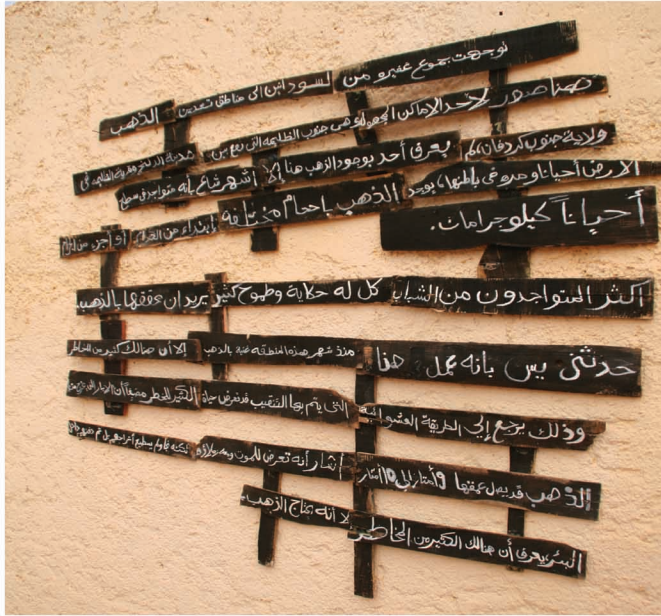 توجهت بجموع غفيرو من السودانين الى مناطق تعدين الذهب
هنا صور لأحد الاماكن المجهولة وهى جنوب الظليمه التى تقع بين
ولاية جنوب كردفان، لم يعرف أحد بوجود الذهب هنا إلا اشهر شائع بانه متواجد فى سطح
الارض أحيانا و فى باطنها، يوجد الذهب باحجام مختلفة إبتداء من أو أجزء من
أحياناً كيلو جرامات.
اكثر المتواجدون من الشباب كل له حكاية وطموح كثير يريد ان يحققها بالذهب.
حدثنى يس بانه عمل هنا منذ شهر هذه المنطقه غنية بالذهب إلا أن هنالك كثير من المخاطر
وذلك يرجع إلى الطريقة العشوائية التى يتم بها التنقيب قد تعرض حياة الكثير للخطر مضيفاً أن الابار التى
الذهب قد يصل عمقها 9 أمتار الى 15 أمتار أشار أنه تعرض للموت
البئر يعرف أن هنالك الكثير من المخاطر لا انه يحتاج الذهب.